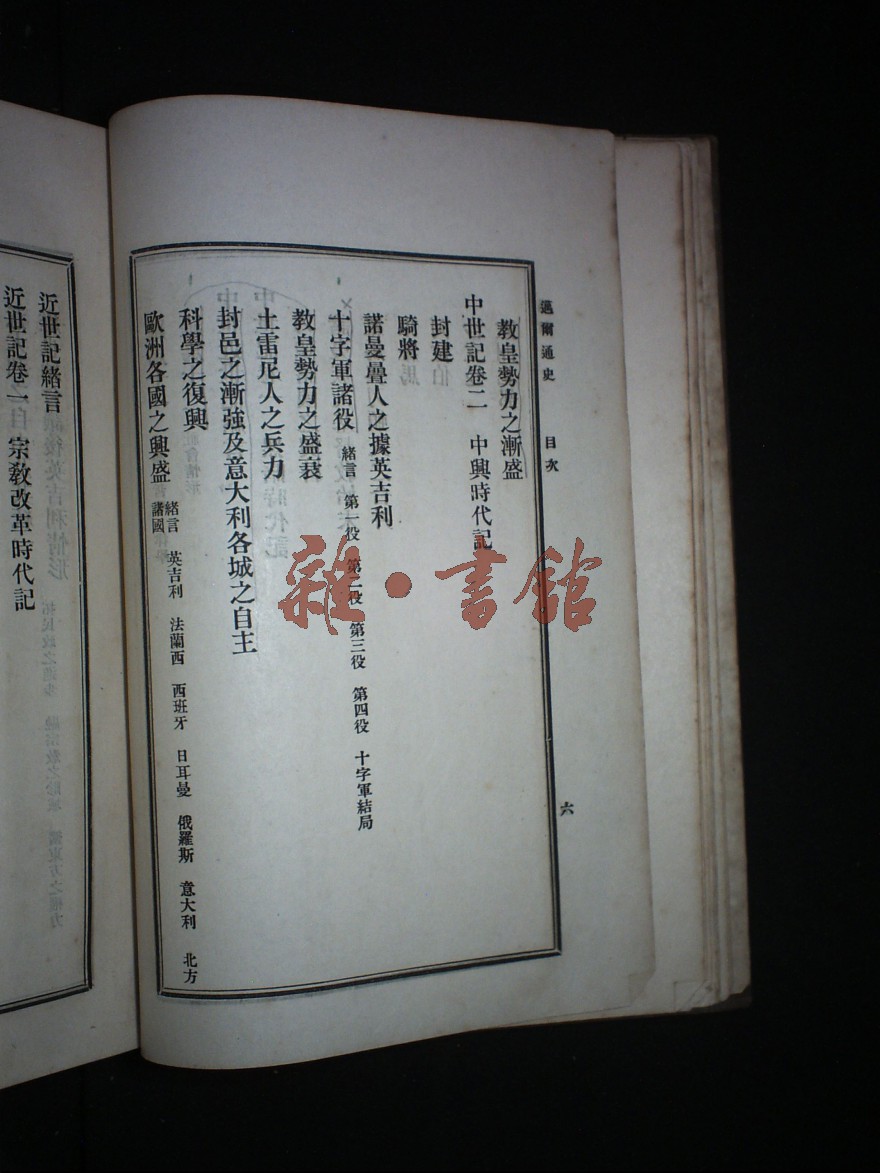 邁爾通史 目次 六
教皇勢力之漸盛
中世記卷二 中興時代記
封建
騎將
諾曼曡人之據英吉利
十字軍諸役 緒言 第一役 第二役 第三役 第四役 十字軍結局
教皇勢力之盛衰
土雷尼人之兵力
封邑之漸強及意大利各城之自主
科學之復興
歐洲各國之興盛 緒言 英吉利 法蘭西 西班牙 日耳曼 俄羅斯 意大利 北方
諸國
近世記緒言
近世記卷一 宗教改革時代記
雜·書館